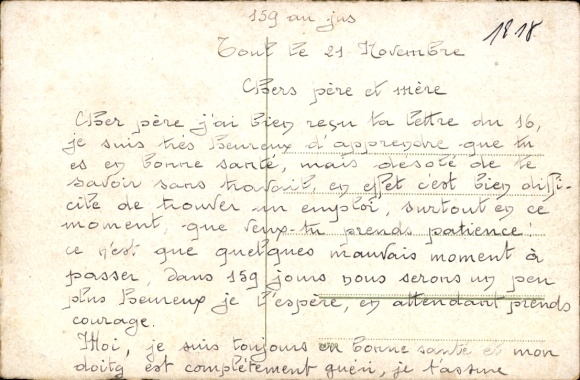 159 au jus
1818
Toul le 21 Novembre
Chers père et mère
Cher père j'ai bien reçu ta lettre du 16,
je suis très heureux d'apprendre que tu
es en bonne santé, mais désolé de te
savoir sans travail, en effet c'est bien diffi-
cite de trouver un emploi, surtout en ce
moment, que veux-tu prends patience!
ce n'est que quelques mauvais moment à
passer, dans 159 jours nous serons un peu
plus heureux je l'espère, en attendant prends
courage.
Moi, je suis toujours en bonne santé et mon
doitg est complètement guéri, je t'assure